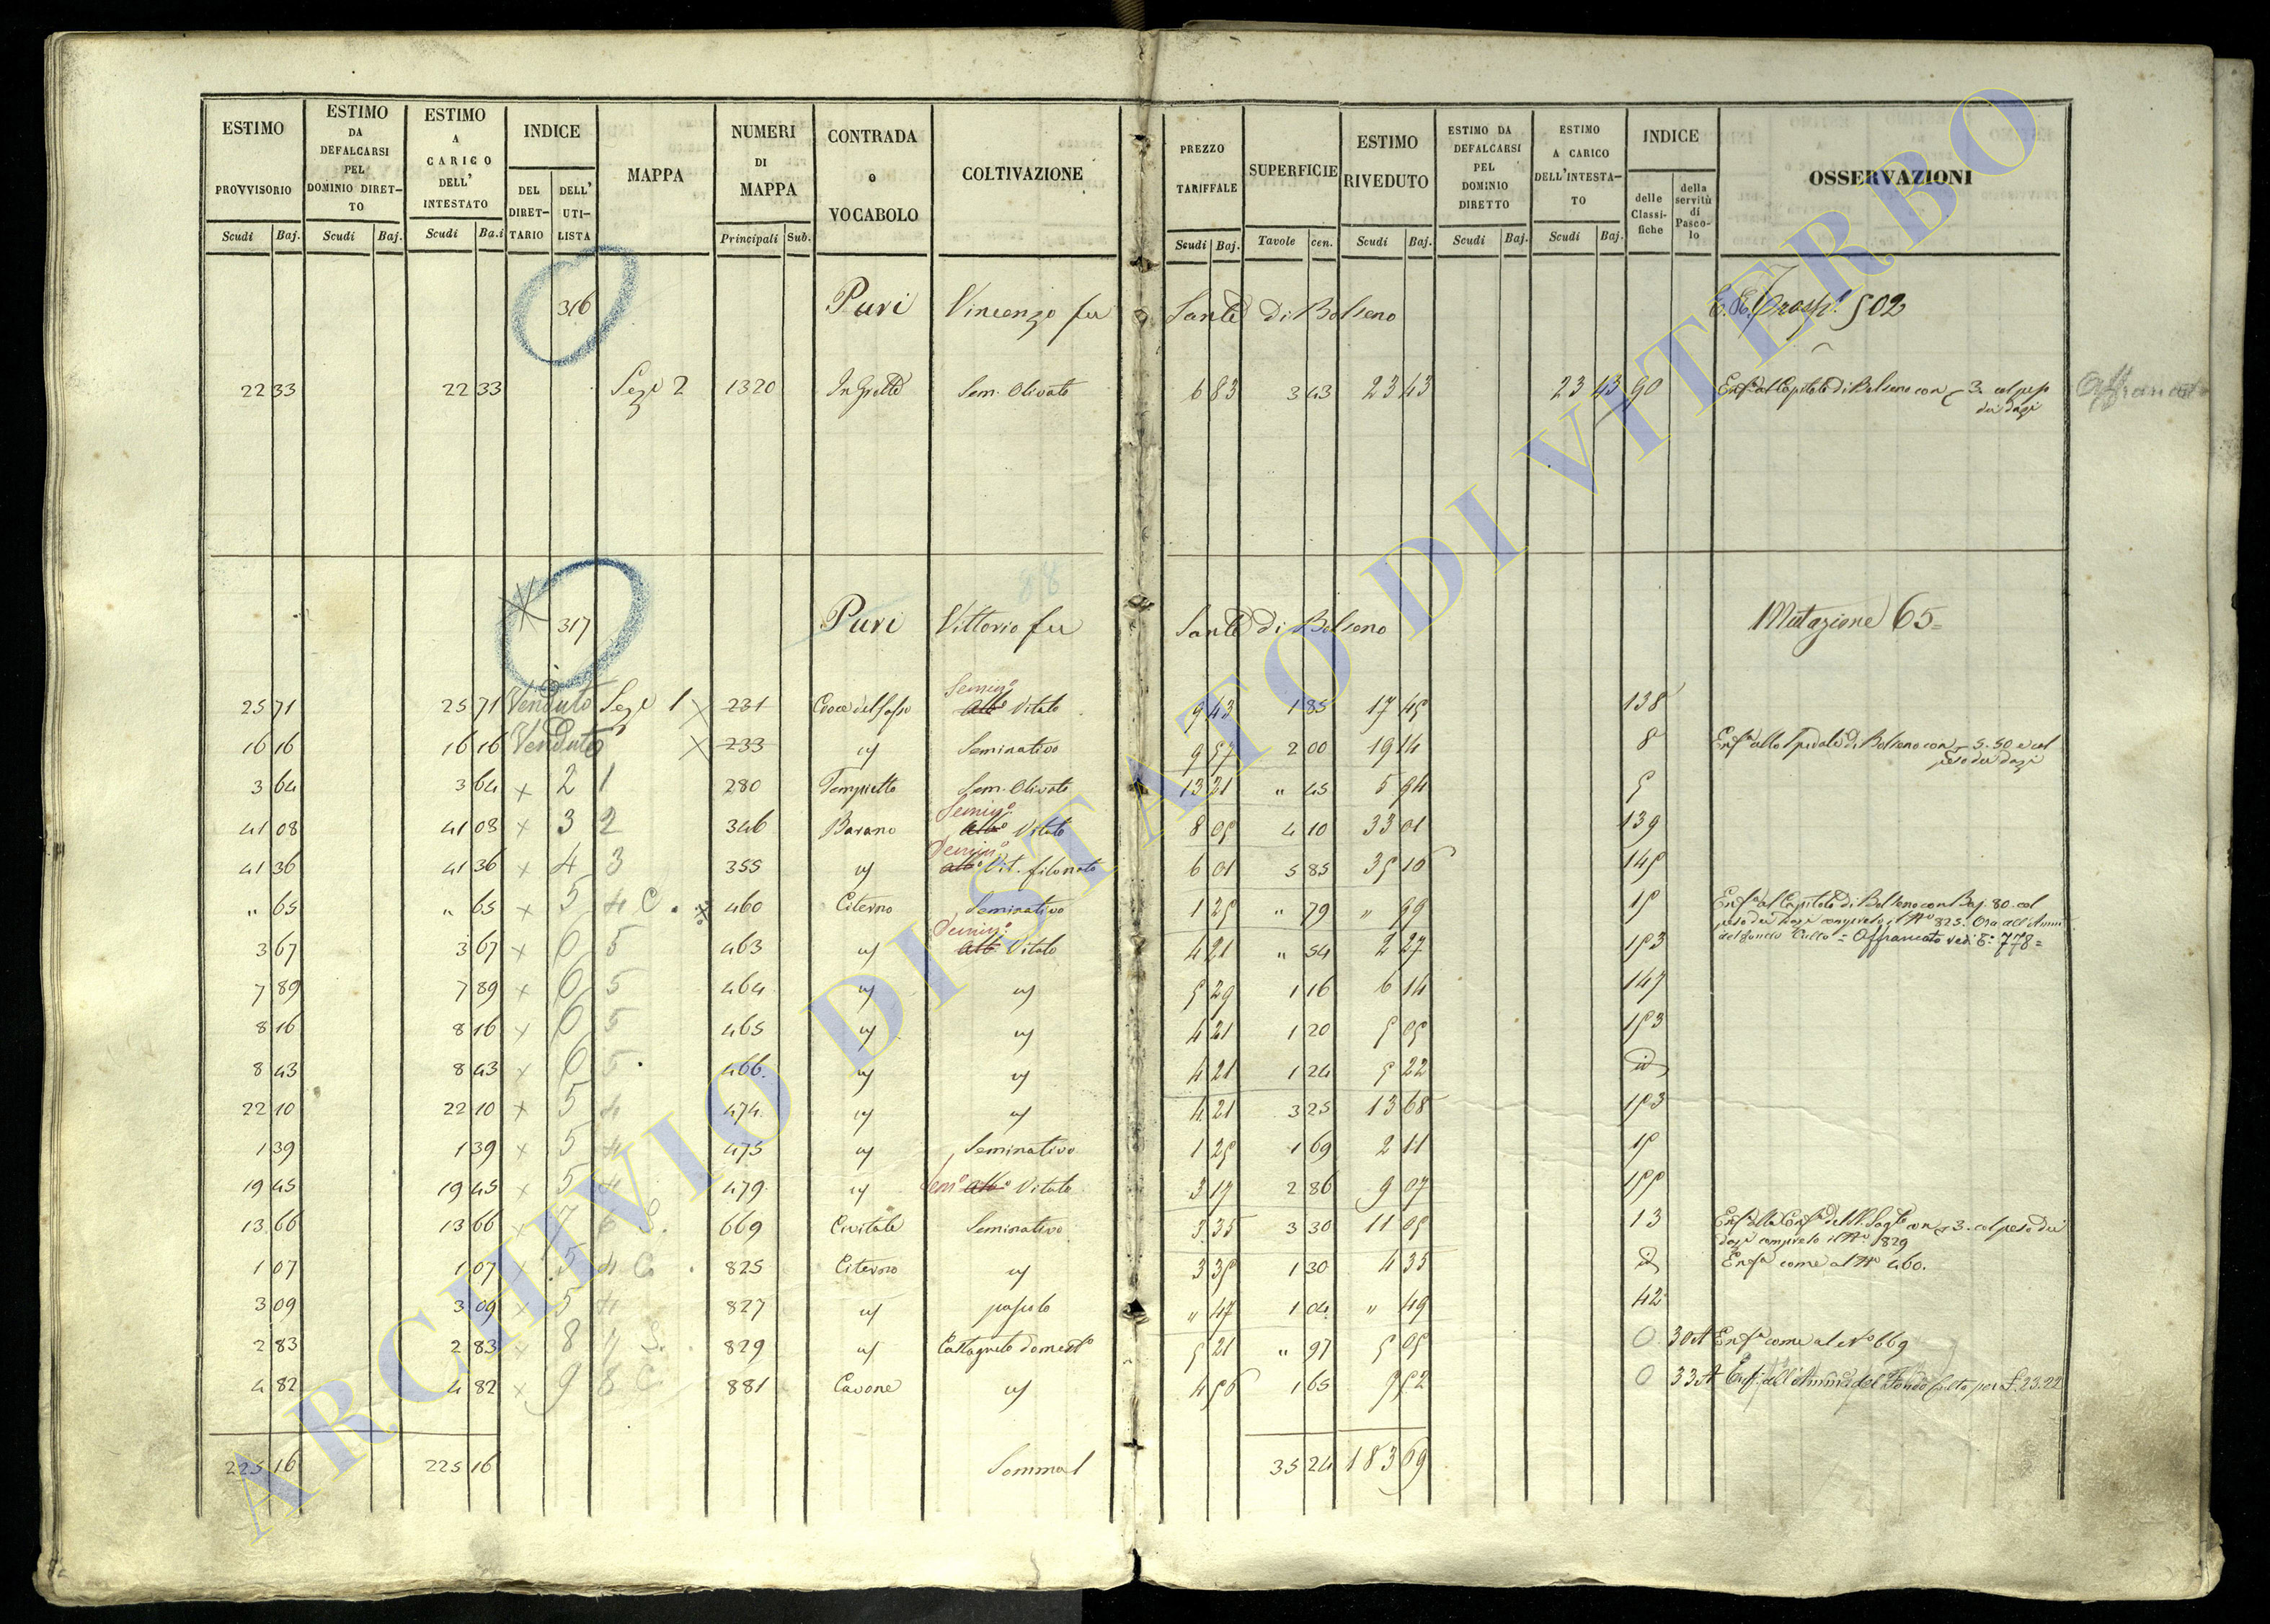 ESTIMO PROVVISORIO Scudi Baj. ESTIMO DA DEFALCARSI PEL DOMINIO DIRETTO Scudi Baj. ESTIMO A CARICO DELL' INTESTATO Scudi Ba.i INDICE DEL DIRETTARIO DELL' UTILISTA MAPPA NUMERI DI MAPPA Principali Sub. CONTRADA o VOCABOLO COLTIVAZIONE PREZZO TARIFFALE Scudi Baj. SUPERFICIE Tavole cen. ESTIMO RIVEDUTO Scudi Baj. ESTIMO DA DEFALCARSI PEL DOMINIO DIRETTO Scudi Baj. ESTIMO A CARICO DELL'INTESTATO Scudi Baj. INDICE delle Classifiche della servitù di Pascolo OSSERVAZIONI
316 Puri Vincenzo fu Sante di Bolseno 502
22 33 22 33 Sez.e 2 1320 In Grotte Sem. Olivato 6 83 3 43 23 43 23 43 90 Enf.a al Capitolo di Bolseno con 3. col peso dei dazi Affrancato
88
317 Puri Vittorio fu Sante di Bolseno Mutazione 65=
25 71 25 71 Venduto Sez.e 1 x 231 Croce del Sasso Semin.o alb.o Vitato 9 43 1 85 17 45 138
16 16 16 16 Venduto x 233 id Seminativo 9 57 2 00 19 14 8 Enf.a allo Spedale di Bolseno con 5.50 e col peso dei dazi
3 64 3 64 x 2 1 280 Tempietto Sem. Olivato 13 21 " 45 5 94 5
41 08 41 08 x 3 2 346 Barano Semin.o alb.o Vitato 8 05 4 10 33 01 139
41 36 41 36 x 4 3 355 id Semin.o alb.o Vit. filonato 6 01 5 85 35 16 145
" 65 " 65 x 5 4 C. 460 Citerno Seminativo 1 25 " 79 " 99 15 Enf.a al Capitolo di Bolseno con Baj. 80. col
peso dei dazi compreso il N.o 825. Ora all'Amm
del fondo Culto = Affrancato vedi 778=
3 67 3 67 x 6 5 463 id Semin.o alb. Vitato 4 21 " 54 2 27 153
7 89 7 89 x 6 5 464 id id 5 29 1 16 6 14 147
8 16 8 16 x 6 5 465 id id 4 21 1 20 5 05 153
8 43 8 43 x 6 5 466. id id 4 21 1 24 5 22 id
22 10 22 10 x 5 4 474. id id 4 21 3 25 13 68 153
1 39 1 39 x 5 4 475 id Seminativo 1 25 1 69 2 11 15
19 45 19 45 x 5 4 479 id Sem.o alb.o Vitato 3 17 2 86 9 07 155
13 66 13 66 x 7 6 S. 669 Civitale Seminativo 3 35 3 30 11 05 13 Enf.a alla Conf.a del SS. Sag.to con 3. col peso dei
dazi compreso il N.o 829
1 07 1 07 x 5 4 C. 825 Citerno id 3 35 1 30 4 35 id Enf.a come al N.o 460.
3 09 3 09 x 5 4 827 id pascolo " 47 1 04 " 49 42
2 83 2 83 x 8 7 S. 829 id Castagneto domest.o 5 21 " 97 5 05 0 30A Enf.a come al N.o 669
4 82 4 82 x 9 8 C 881 Cavone id 4 56 1 65 7 52 0 33A Enf. all'Amm.e del Fondo Culto per £. 23.22
225 16 225 16 Somma 35 24 183 69
ARCHIVIO DI STATO DI VITERBO